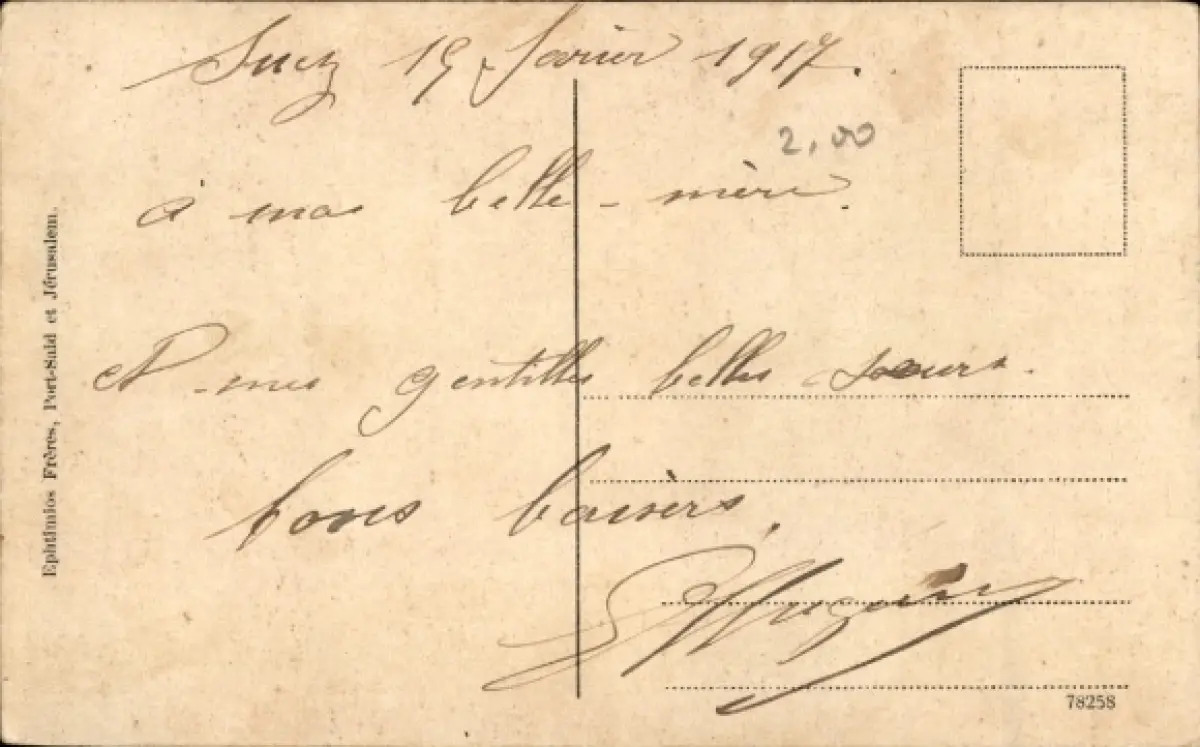 Suez 19 février 1917.
2,00
à ma belle-mère.
et mes gentilles belles soeurs.
bons baisers.
Ephtimios Frères, Port-Saïd et Jérusalem.
78258